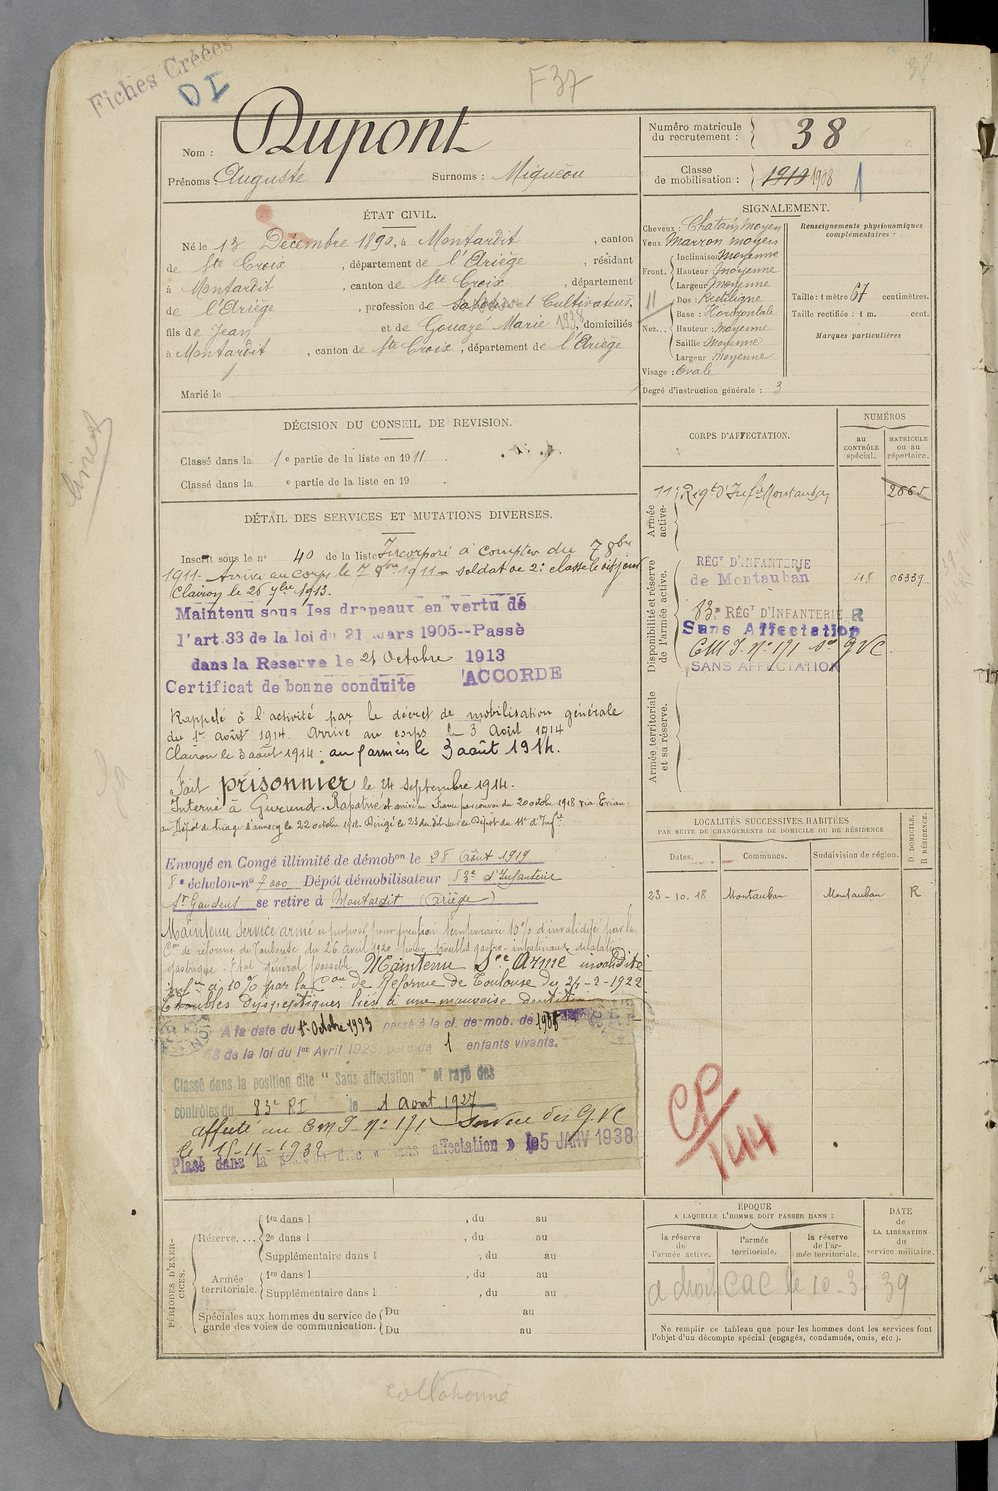 Fiches Créées
DI
F 37
38
Nom : Dupont
Prénoms Auguste Surnoms : Miquèou
Numéro matricule du recrutement : 38
Classe de mobilisation : 1910 1908 1
ÉTAT CIVIL.
Né le 13 Décembre 1890, à Montardit, canton
de Ste Croix, département de l'Ariège, résidant
à Montardit, canton de Ste Croix, département
de l'Ariège, profession de Cultivateur,
fils de Jean et de Gouazé Marie 1938, domiciliés
à Montardit, canton de Ste Croix, département de l'Ariège
Marié le
SIGNALEMENT.
Cheveux : Chatains moyen
Yeux Marron moyen
Front. Inclinaison Moyenne
Hauteur : moyenne
Largeur Moyenne
11
Nez... Dos : Rectiligne
Base : Horizontale
Hauteur : moyenne
Saillie Moyenne
Largeur : moyenne
Visage : Ovale
Degré d'instruction générale : 3
Renseignements physionomiques complémentaires :
Taille : 1 mètre 67 centimètres.
Taille rectifiée : 1 m. cent.
Marques particulières
DÉCISION DU CONSEIL DE REVISION.
Classé dans la 1e partie de la liste en 1911.
Classé dans la e partie de la liste en 19 .
DÉTAIL DES SERVICES ET MUTATIONS DIVERSES.
Inscrit sous le n° 40 de la liste Incorporé à compter du 7 8bre
1911. Arrivé au corps le 7 8bre 1911 soldat de 2e classe le dit jour
Clairon le 26 9bre 1913.
Maintenu sous les drapeaux en vertu de
l'art. 33 de la loi du 21 mars 1905--Passé
dans la Reserve le 21 Octobre 1913
Certificat de bonne conduite ACCORDE
Rappelé à l'activité par le décret de mobilisation générale
du 1er août 1914. Arrivé au corps le 3 Août 1914
Clairon le 3 août 1914 : aux armées le 3 août 1914.
Fait prisonnier le 24 septembre 1914.
Interné à Rapatrié et arrivé en France par convoi du 20 octobre 1918 via Evian
au Dépôt de triage d'Annecy le 22 octobre 1918. Dirigé le 23 dudit sur le Dépôt du 11e d'Infie
Envoyé en Congé illimité de démobon le 28 Août 1919
8e échelon-n° 7000 Dépôt démobilisateur 83e d'Infanterie
St Gaudens se retire à Montardit (Ariège)
Maintenu service armé et proposé pour pension temporaire 10% d'invalidité par la
Con de réforme de Toulouse du 26 avril 1920 pour troubles gastro-intestinaux dilatation
gastrique. Etat général passable Maintenu Sce Armé invalidité
infre à 10% par la Con de Réforme de Toulouse du 24-2-1922
Troubles dyspeptiques liés à une mauvaise dentition
A la date du 1er Octobre 1923 passé à la cl. de mob. de 1908
58 de la loi du 1er Avril 1923, père de 1 enfants vivants.
Classé dans la position dite "Sans affectation" et rayé des
contrôles du 83e RI le 1 Avril 1927
affecté au CM I n° 171 Service des GVC
le 15-11-1932
Placé dans la position dite « sans affectation » le 5 JANV 1938
CORPS D'AFFECTATION.
NUMÉROS
au CONTRÔLE spécial.
MATRICULE ou au répertoire.
Armée active.
11e Régt d'Infie Montauban 2665
Disponibilité et réserve de l'armée active.
RÉGT D'INFANTERIE
de Montauban 48 06339
83e RÉGT D'INFANTERIE R
Sans Affectation
CM I n° 171 Sce GVC
SANS AFFECTATION
Armée territoriale et sa réserve.
LOCALITÉS SUCCESSIVES HABITÉES
PAR SUITE DE CHANGEMENTS DE DOMICILE OU DE RÉSIDENCE
Dates. Communes. Subdivision de région. D DOMICILE, R RÉSIDENCE.
23-10-18 Montauban Montauban R
CP/144
PÉRIODES D'EXERCICES.
Réserve.... 1re dans l , du au
2e dans l , du au
Supplémentaire dans l , du au
Armée territoriale. 1re dans l , du au
Supplémentaire dans l , du au
Spéciales aux hommes du service de garde des voies de communication. Du au
Du au
ÉPOQUE
A LAQUELLE L'HOMME DOIT PASSER DANS :
la réserve de l'armée active.
l'armée territoriale.
la réserve de l'armée territoriale.
DATE de LA LIBÉRATION du service militaire.
a droit CaC le 10-3-39
Ne remplir ce tableau que pour les hommes dont les services font
l'objet d'un décompte spécial (engagés, condamnés, omis, etc.).
collationné